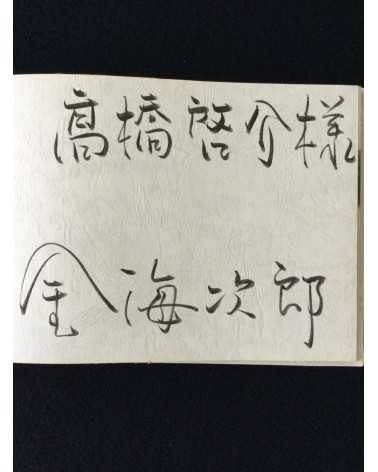 髙橋啓介様
金海次郎